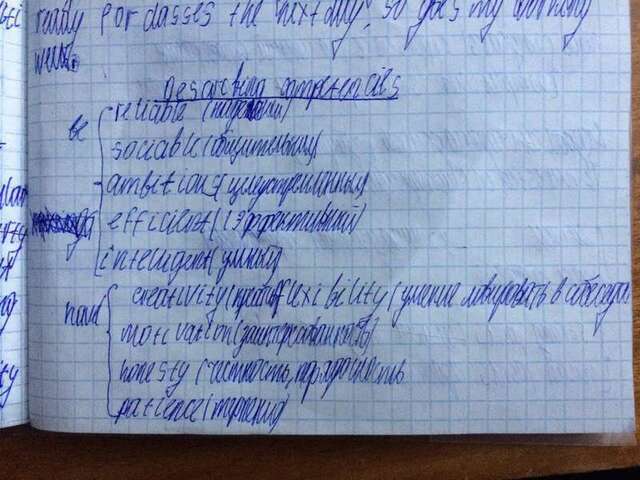 ready for classes the next day, so goes my working
week.
Describing competencies
be reliable (
sociable (общительный)
ambitious (целеустремленный)
efficient (эффективный)
inteligent (умный)
have creativity flexibility (умение лавировать в
motivation (заинтересованность)
honesty (честность, порядочность
patience (терпение)